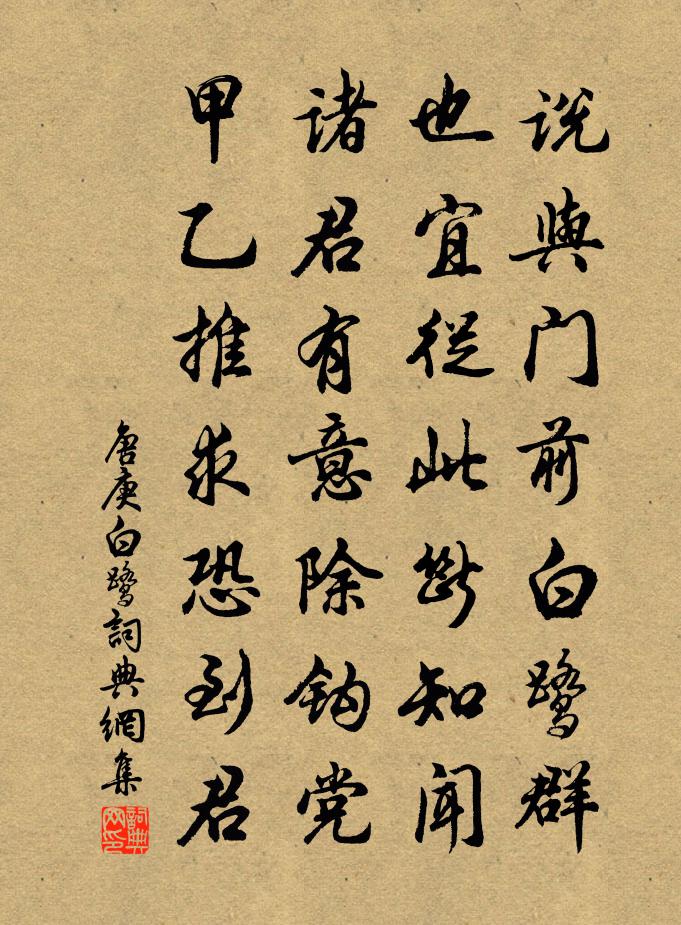 说與门前白鹭群
也宜從此断知闻
诸君有意除钩党
甲乙推求恐到君
唐庚白鹭詞典網集
詞典网印